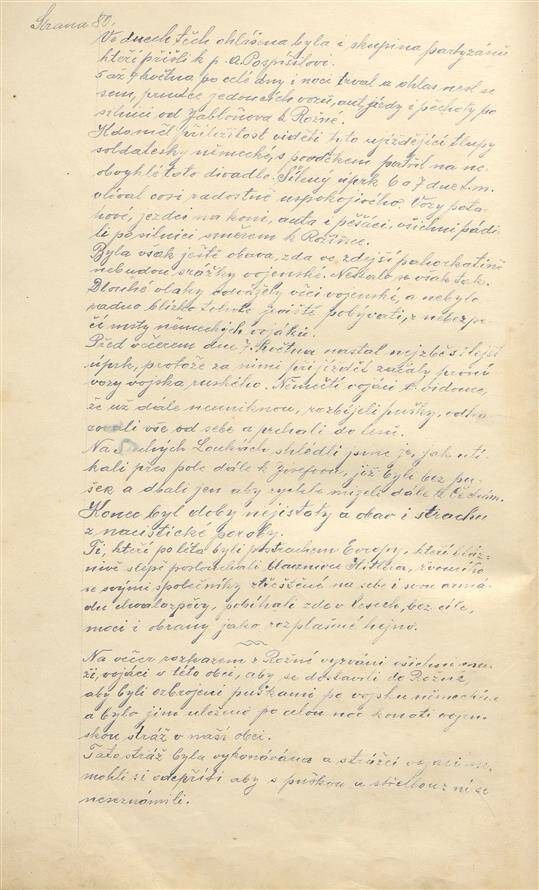 Strana 80.
Ve dnech těch ohlášena byla i skupina partyzánů
kteří přišli k p. A. Pospíšilovi.
5 až 9 května po celé dny i noci trval a ohlas nesl se
sem, prudce jedoucích vozů, aut, jízdy i pěchoty po
silnici od Jablonova k Rožné.
Kdo měl příležitost viděti tyto ujíždějící tlupy
soldatesky německé, s povděkem patřil na ne-
obvyklé toto divadlo. Šílený úprk 6 a 7 dne t.m.
vléval cosi radostně uspokojivého. Vozy pota-
hové, jezdci na koni, auta i pěšáci, všichni pádi-
li po silnici směrem k Rožince.
Byla však ještě obava, zda ve zdejší pahorkatině
nebudou srážky vojenské. Nestalo se však tak.
Dlouhé vlaky odvážely věci vojenské, a nebylo
radno blízko tohoto jeviště pobývati, z nebezpe-
čí msty německých vojáků.
Před večerem dne 7. května nastal nejzběsilejší
úprk, protože za nimi přijíždět začaly první
vozy vojska ruského. Němečtí vojáci vidouce,
že už dále neuniknou, rozbíjeli pušky, odha-
zovali vše od sebe a prchali do lesů.
Na Suchých Loukách shlédli jsme je, jak utí-
kali přes pole dále k Josefovu, již byli bez pu-
šek a dbali jen aby rychle mizeli dále
Konec byl doby nejistoty a obav i strachu
z nacistické poroby.
Ti, kteří po léta byli postrachem Evropy, kteří bláz-
nivě slepí poslouchali blázniva Hitlera, řvoucího
se svými společníky vřeštěné na sebe i svou armá-
du chvalozpěvy, pobíhali zde v lesích, bez cíle,
moci i obrany jako rozplašené hejno.
Na večer rozkazem z Rožné vyzváni všichni mu-
ži, vojáci v této obci, aby se dostavili do Rožné,
aby byli ozbrojeni puškami po vojsku německém
a bylo jim uloženo po celou noc konati vojen-
skou stráž v naší obci.
Tato stráž byla vykonávána a strážci vojáci ne-
mohli si odepříti aby s puškou a střelbou z ní se
neseznámili.